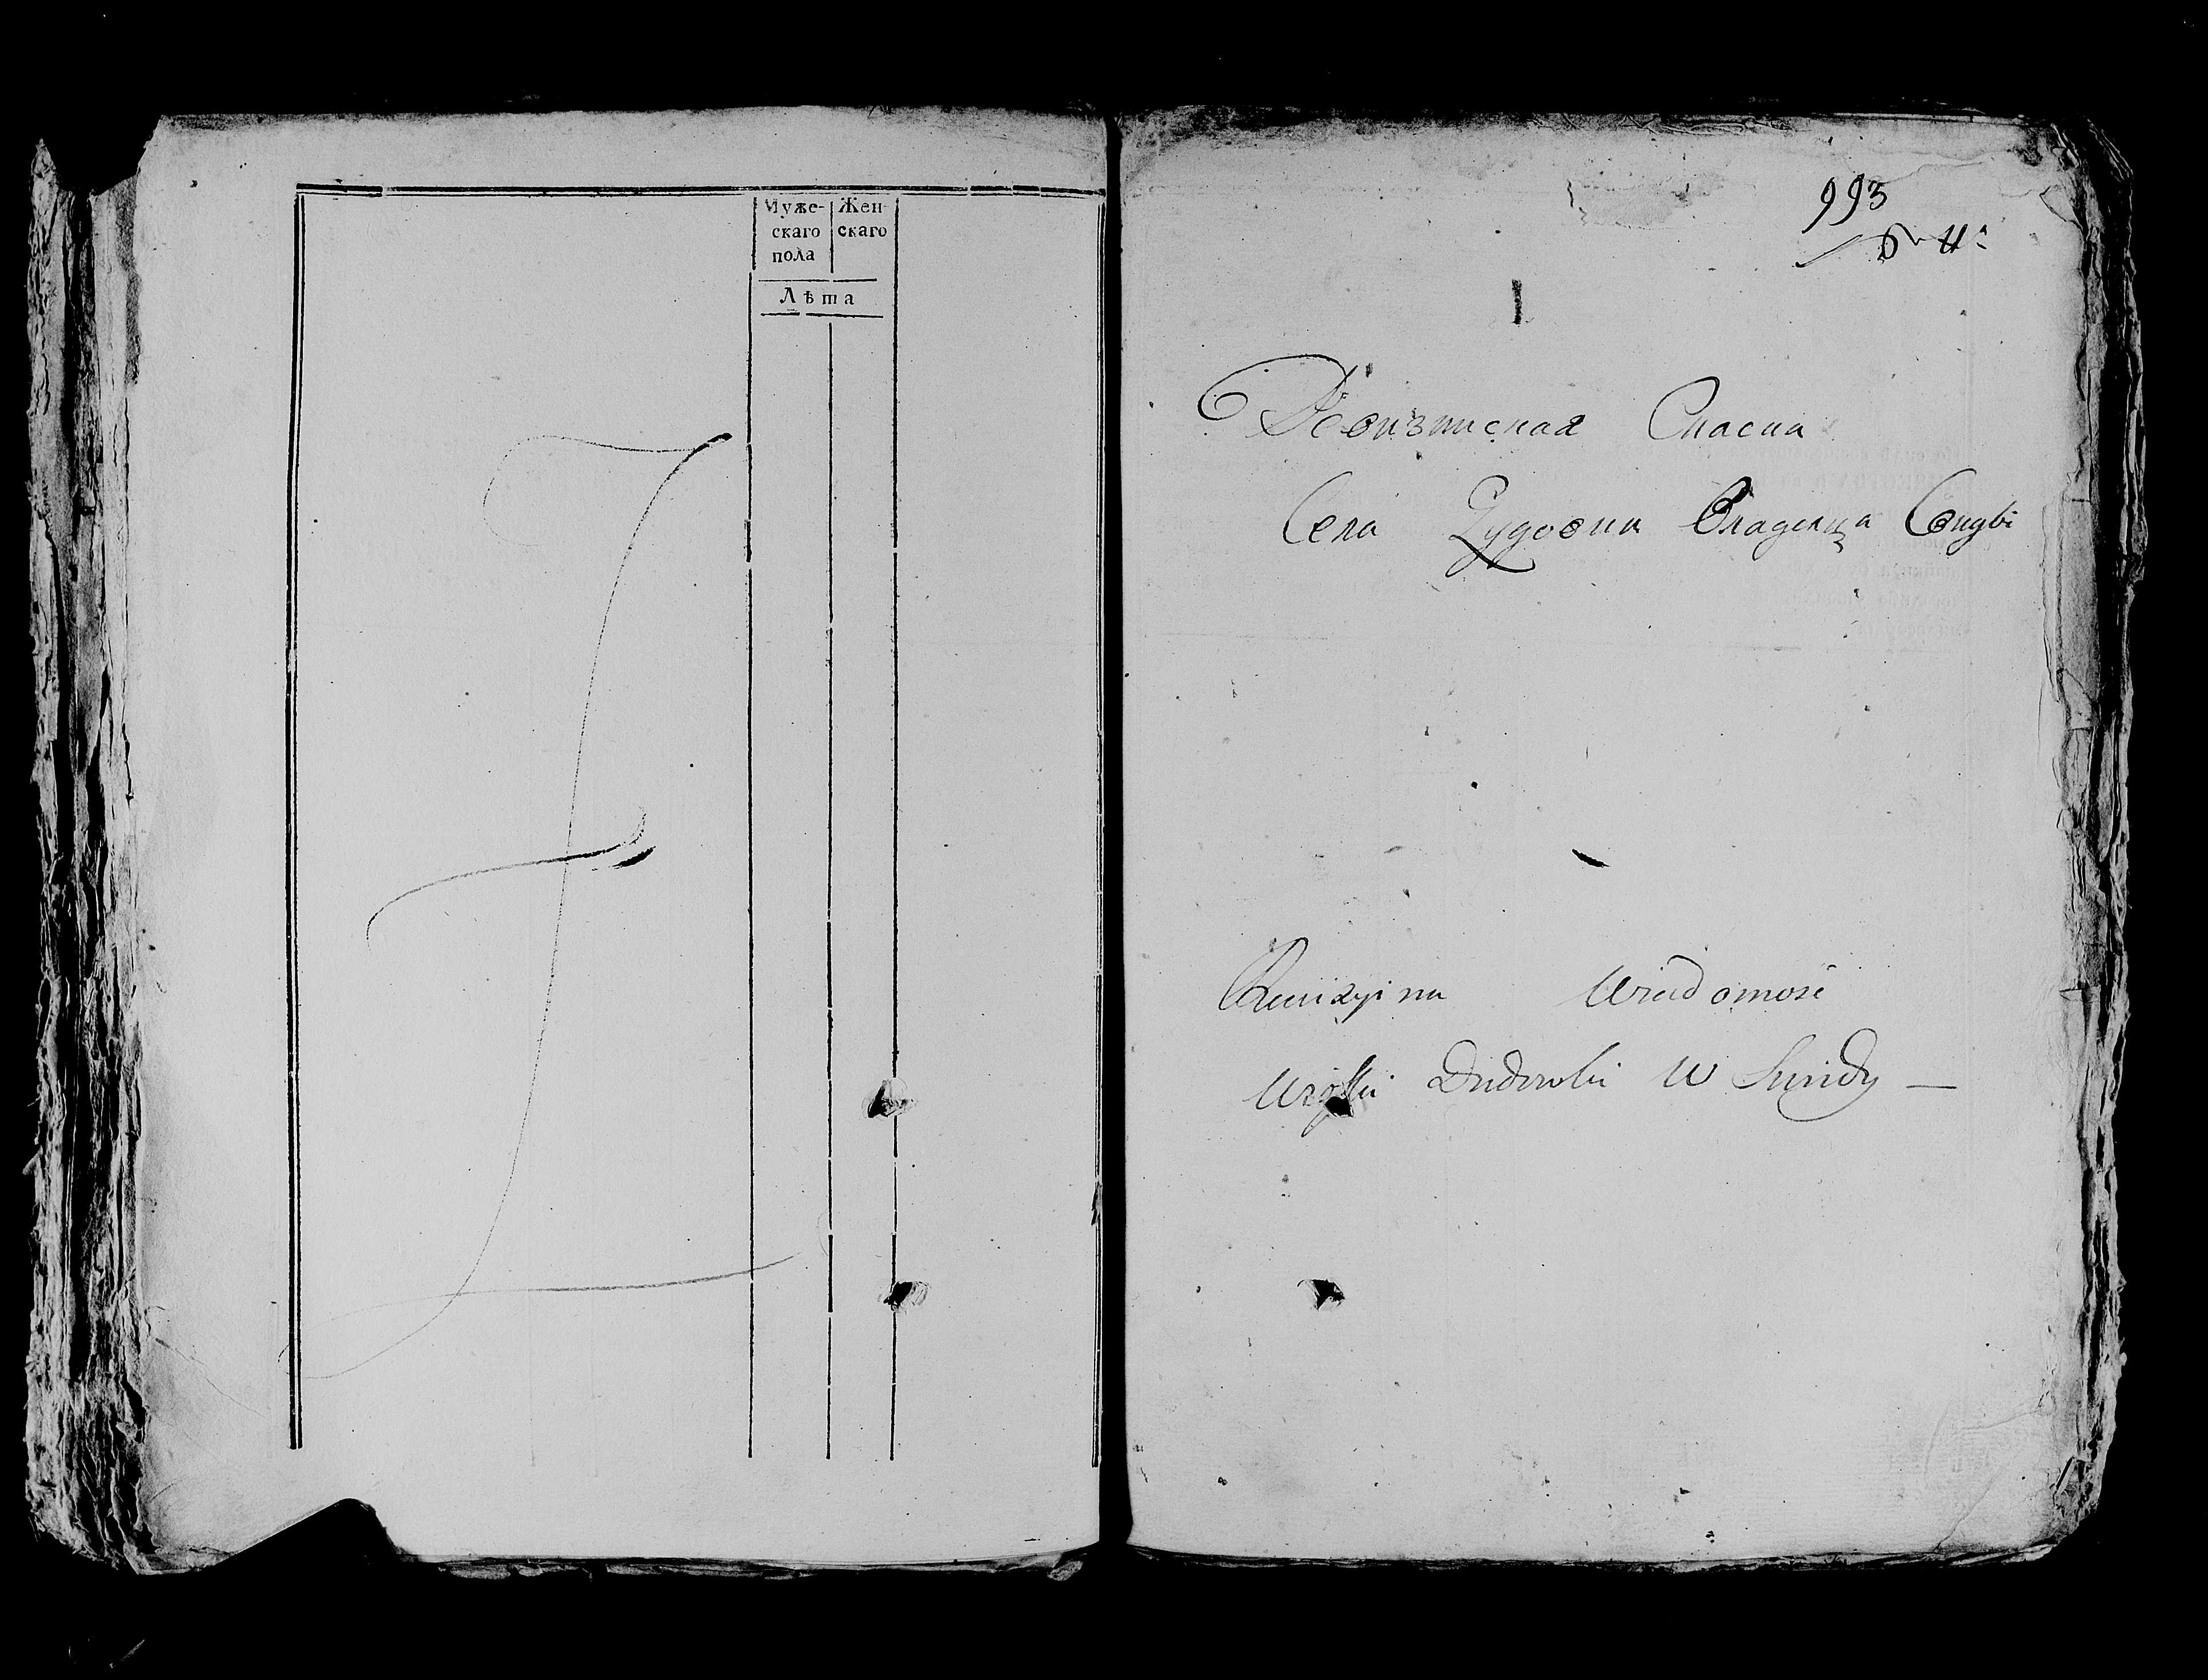 Муже-
скаго
пола
Жен-
скаго
Лѣта
993
Ревизская Сказка
Села Дудовки Владелца Свиды
Rewizyina Wiadomość
Dudowki W Swidy —